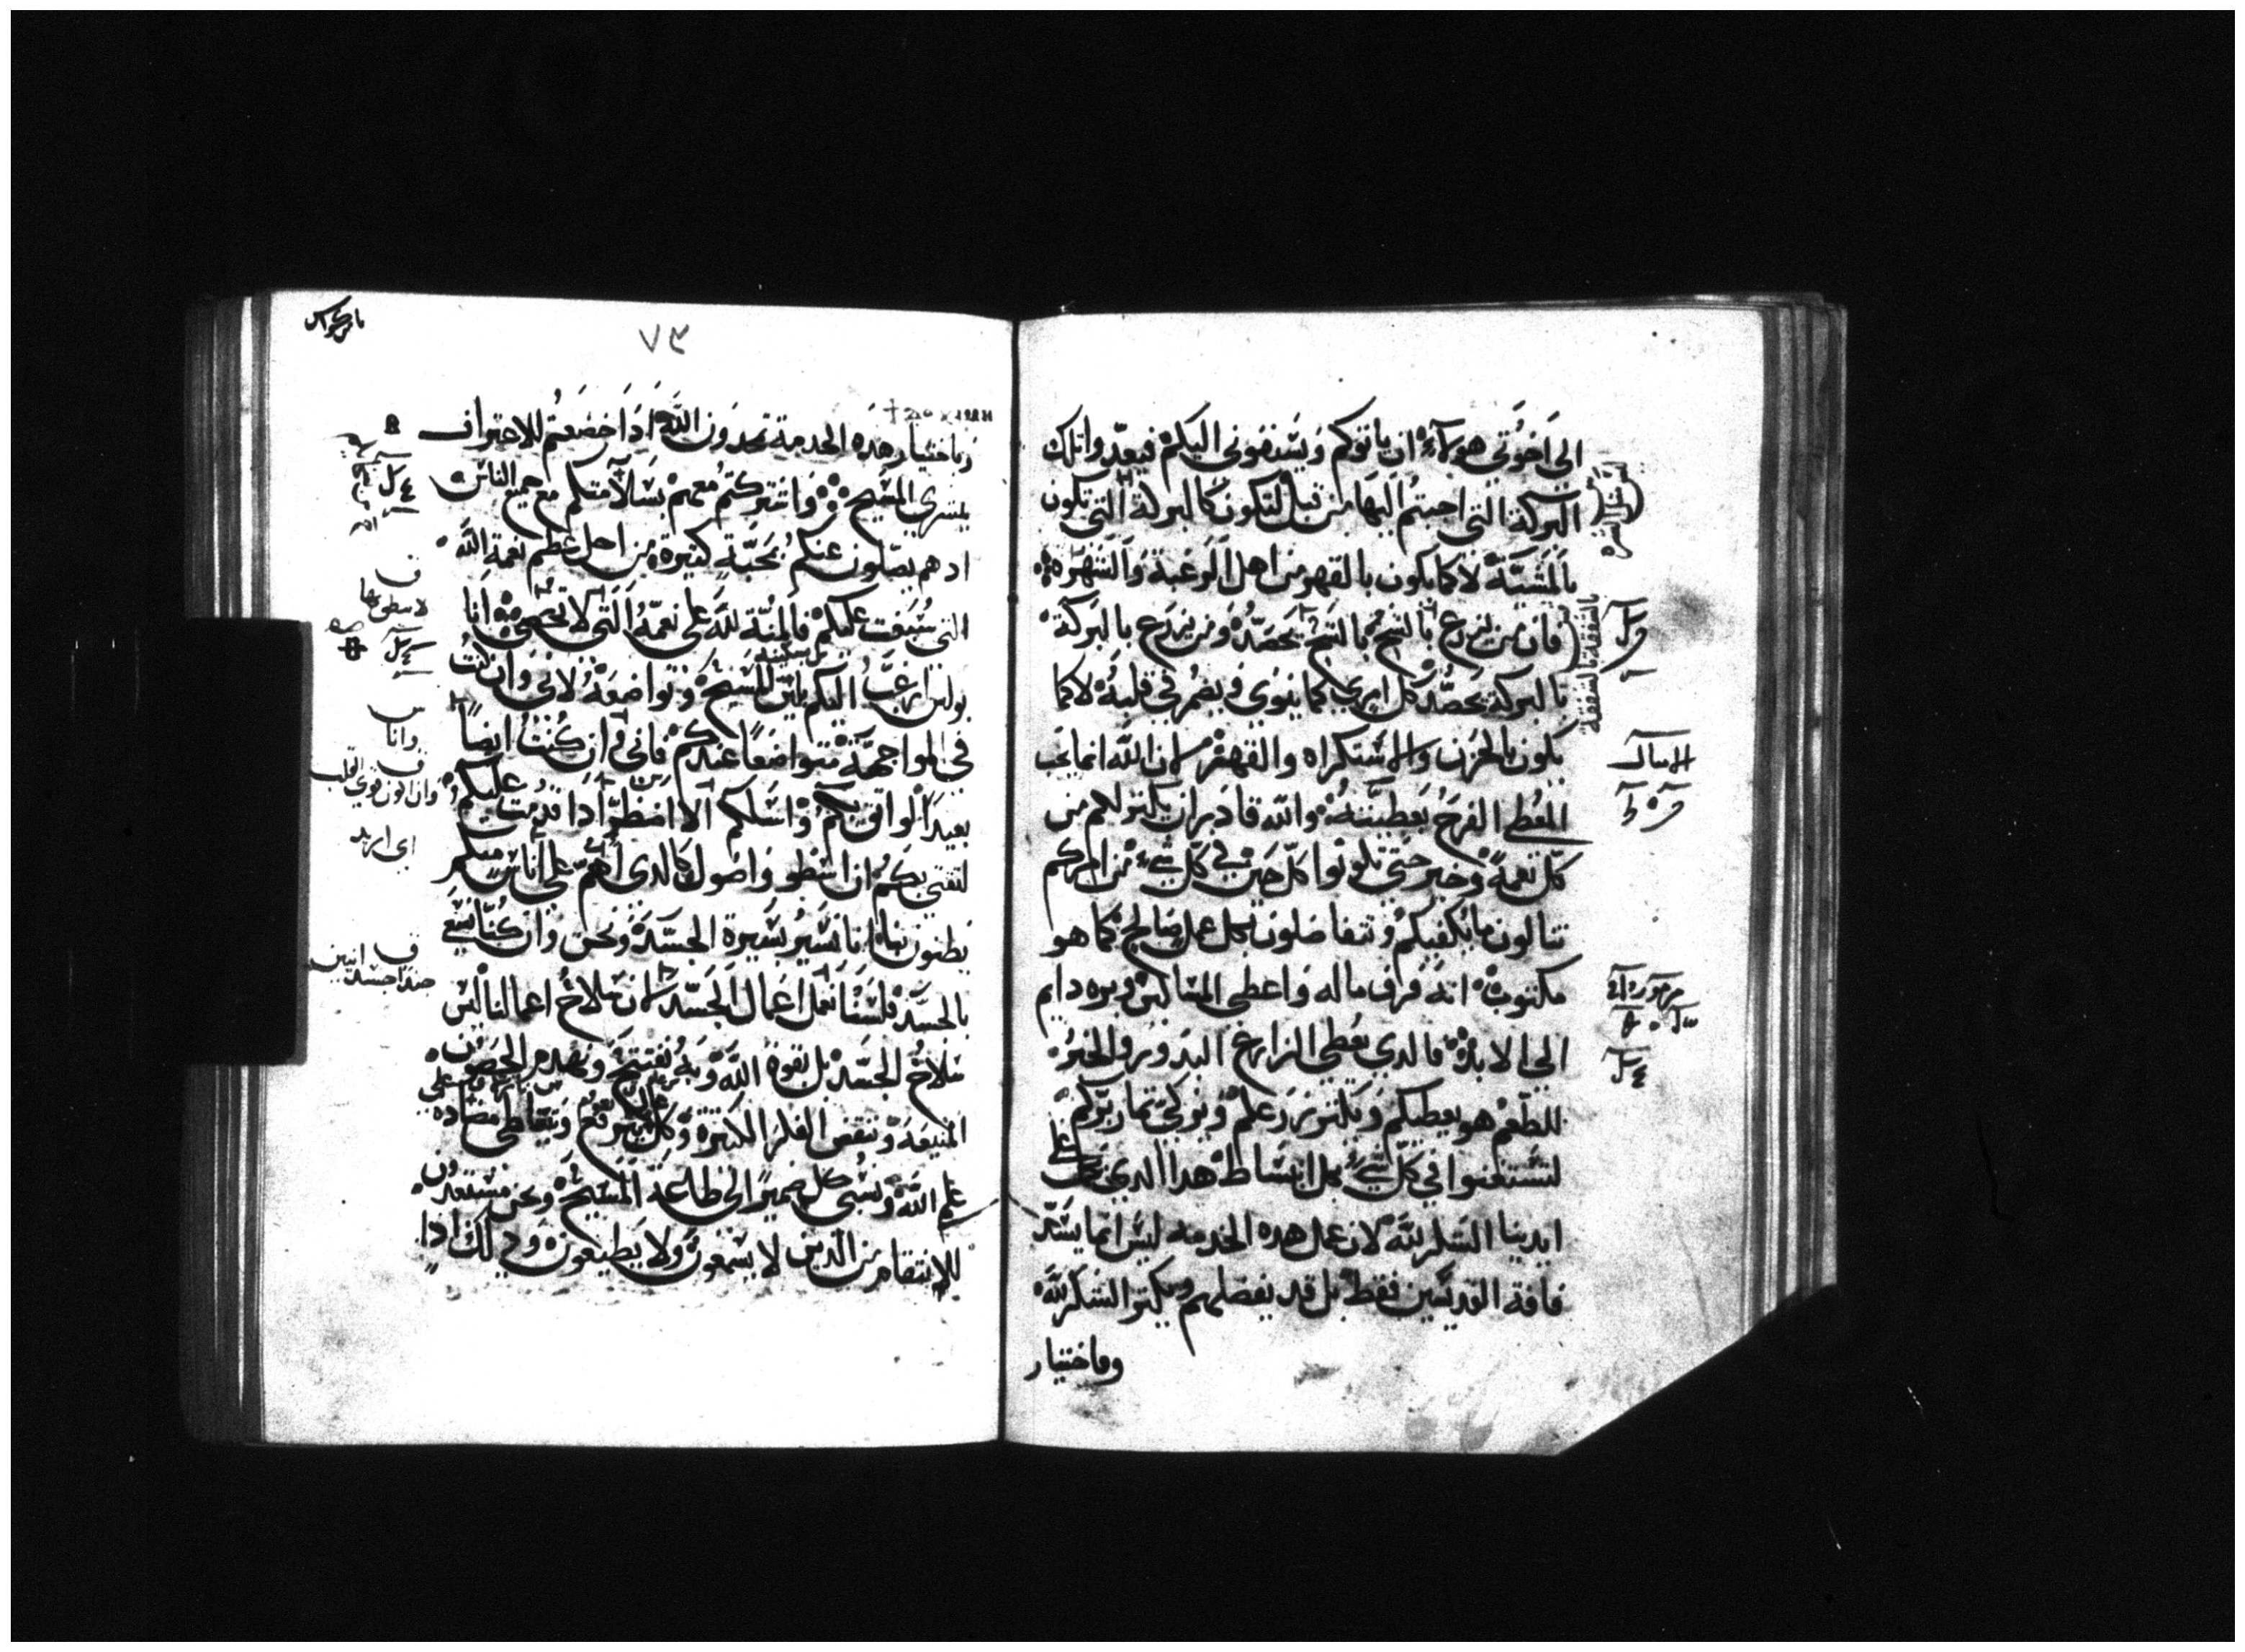 الى اخوتي هولآء ان ياتوكم ويسبقوني اليكم فيعدوا تلك
البركة التي اجبتم اليها من قبل لتكون كالبركة التي تكون
بالمشية لا كما يكون بالقهر من اهل الرغبة والشهره
فان من يزرع بالشح بالشح يحصد ومن يزرع بالبركة
بالبركة يحصد كل امري كما ينوي ويضمر في قلبه لا كما
يكون بالحزن والاستكراه والقهر لان الله انما يحب
المعطي الفرح بعطيته والله قادر ان يكتر لكم من
كل نعمة وخير حتي تكونوا كل حين في كل شيء من امركم
تنالون ما يكفيكم وتتفاضلون بكل عمل صالح كما هو
مكتوب انه فرق ماله واعطى المساكين وبره دايم
الى الابد فالدي يعطي الزارع البدر والخبز
للطعم هو يعطيكم ويكتر زرعكم ويزكي تمار بركم
لتستغنوا في كل شيء بكل انبساط هدا الدي يكمل على
ايدينا الشكر لله لان عمل هده الخدمه ليس انما يسد
فاقة القديسين فقط بل قد يفضلهم ويكتر الشكر لله
وباختيار
بالشفقة بالشفقة
مزمور
٧٣
وباختيار هده الخدمة تمجدون الله ادا خضعتم للاعتراف
ببشرى المسيح واشتركتم معهم بسلامتكم مع جميع الناس
اد هم يصلون عنكم بمحبة كتيرة من اجل عظم نعمة الله
التي سبقت عليكم فالمنة لله على نعمه التي لا تحصى انا
بولس ارغب اليكم بلين المسيح وتواضعه لاني وان كنت
في المواجهة متواضعا عندكم فاني وان كنت ايضا
بعيدا لواتق بكم واسلكم الا اضطر ادا قدمت عليكم
لتقتي بكم ان اسطو واصول كالدي اهم على اناس منكم
يظنون بنا انا نسير بسيرة الجسد ونحن وان كنا نسعى
بالجسد فلسنا نعمل اعمال الجسد لان سلاح اعمالنا ليس
سلاح الجسد بل بقوة الله وبه نفتتح ونهدم الحصون
المنيعة وننقض الفكر الكتيرة وكل يرتفع ويتعاطى مضاده
علم الله ونسبي كل ضمير الى طاعة المسيح ونحن مستعدون
للانتقام من الدين لا يسمعون ولا يطيعون ودلك ادا
لا سطو بها
وانا
وان اكون قوي القلب
اى اريد